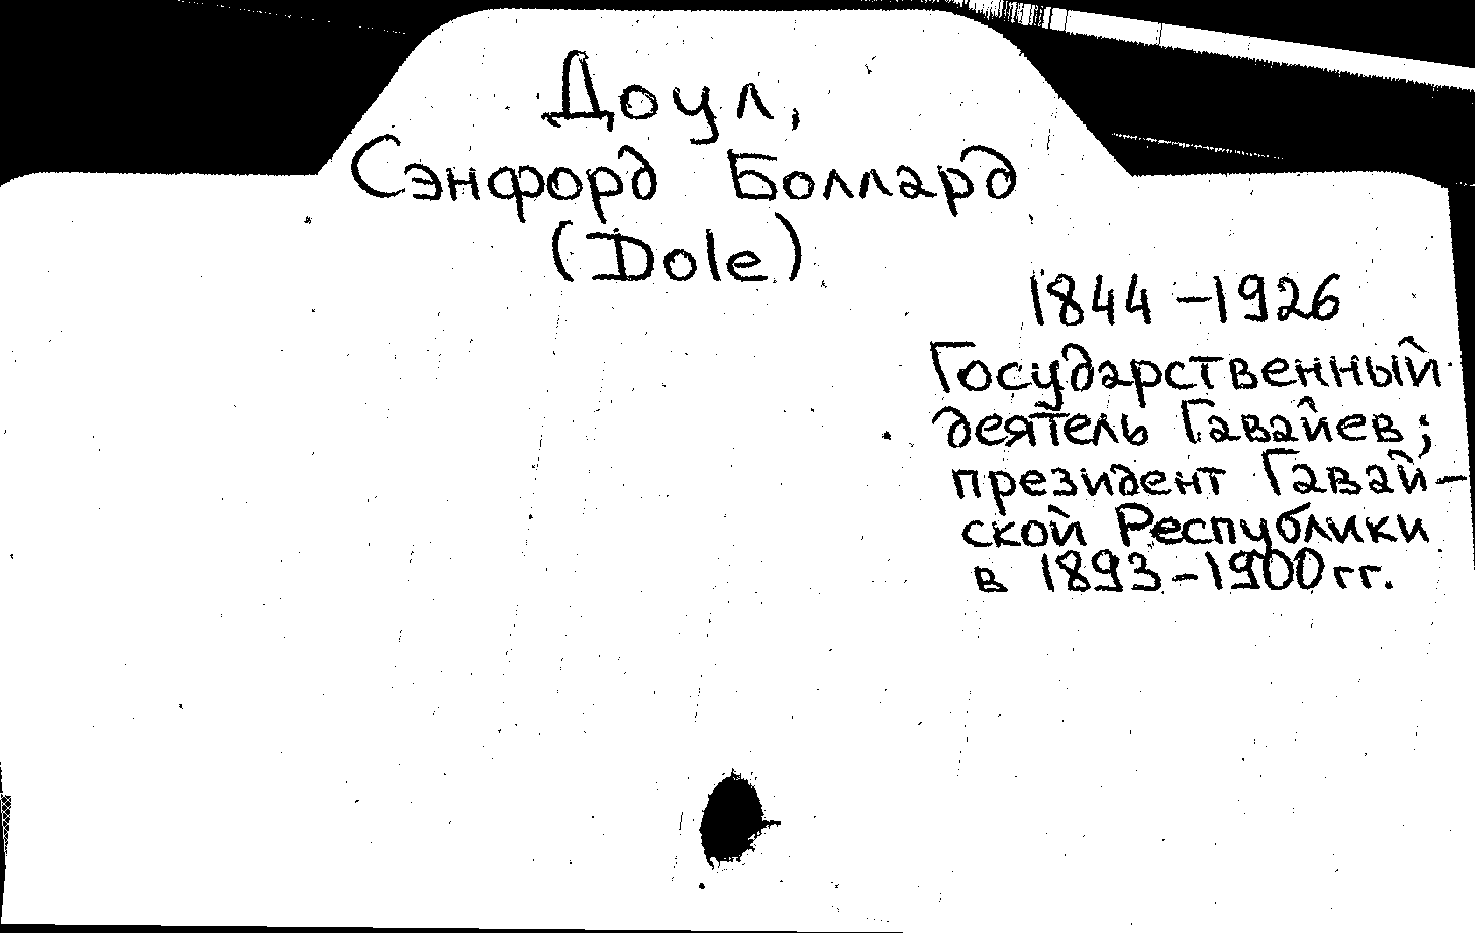 Доул,
Сэнфорд Боллард
(Dole)
1844-1926
Государственный
деятель Гавайев;
президент Гавай-
ской Республики
в 1893-1900 гг.